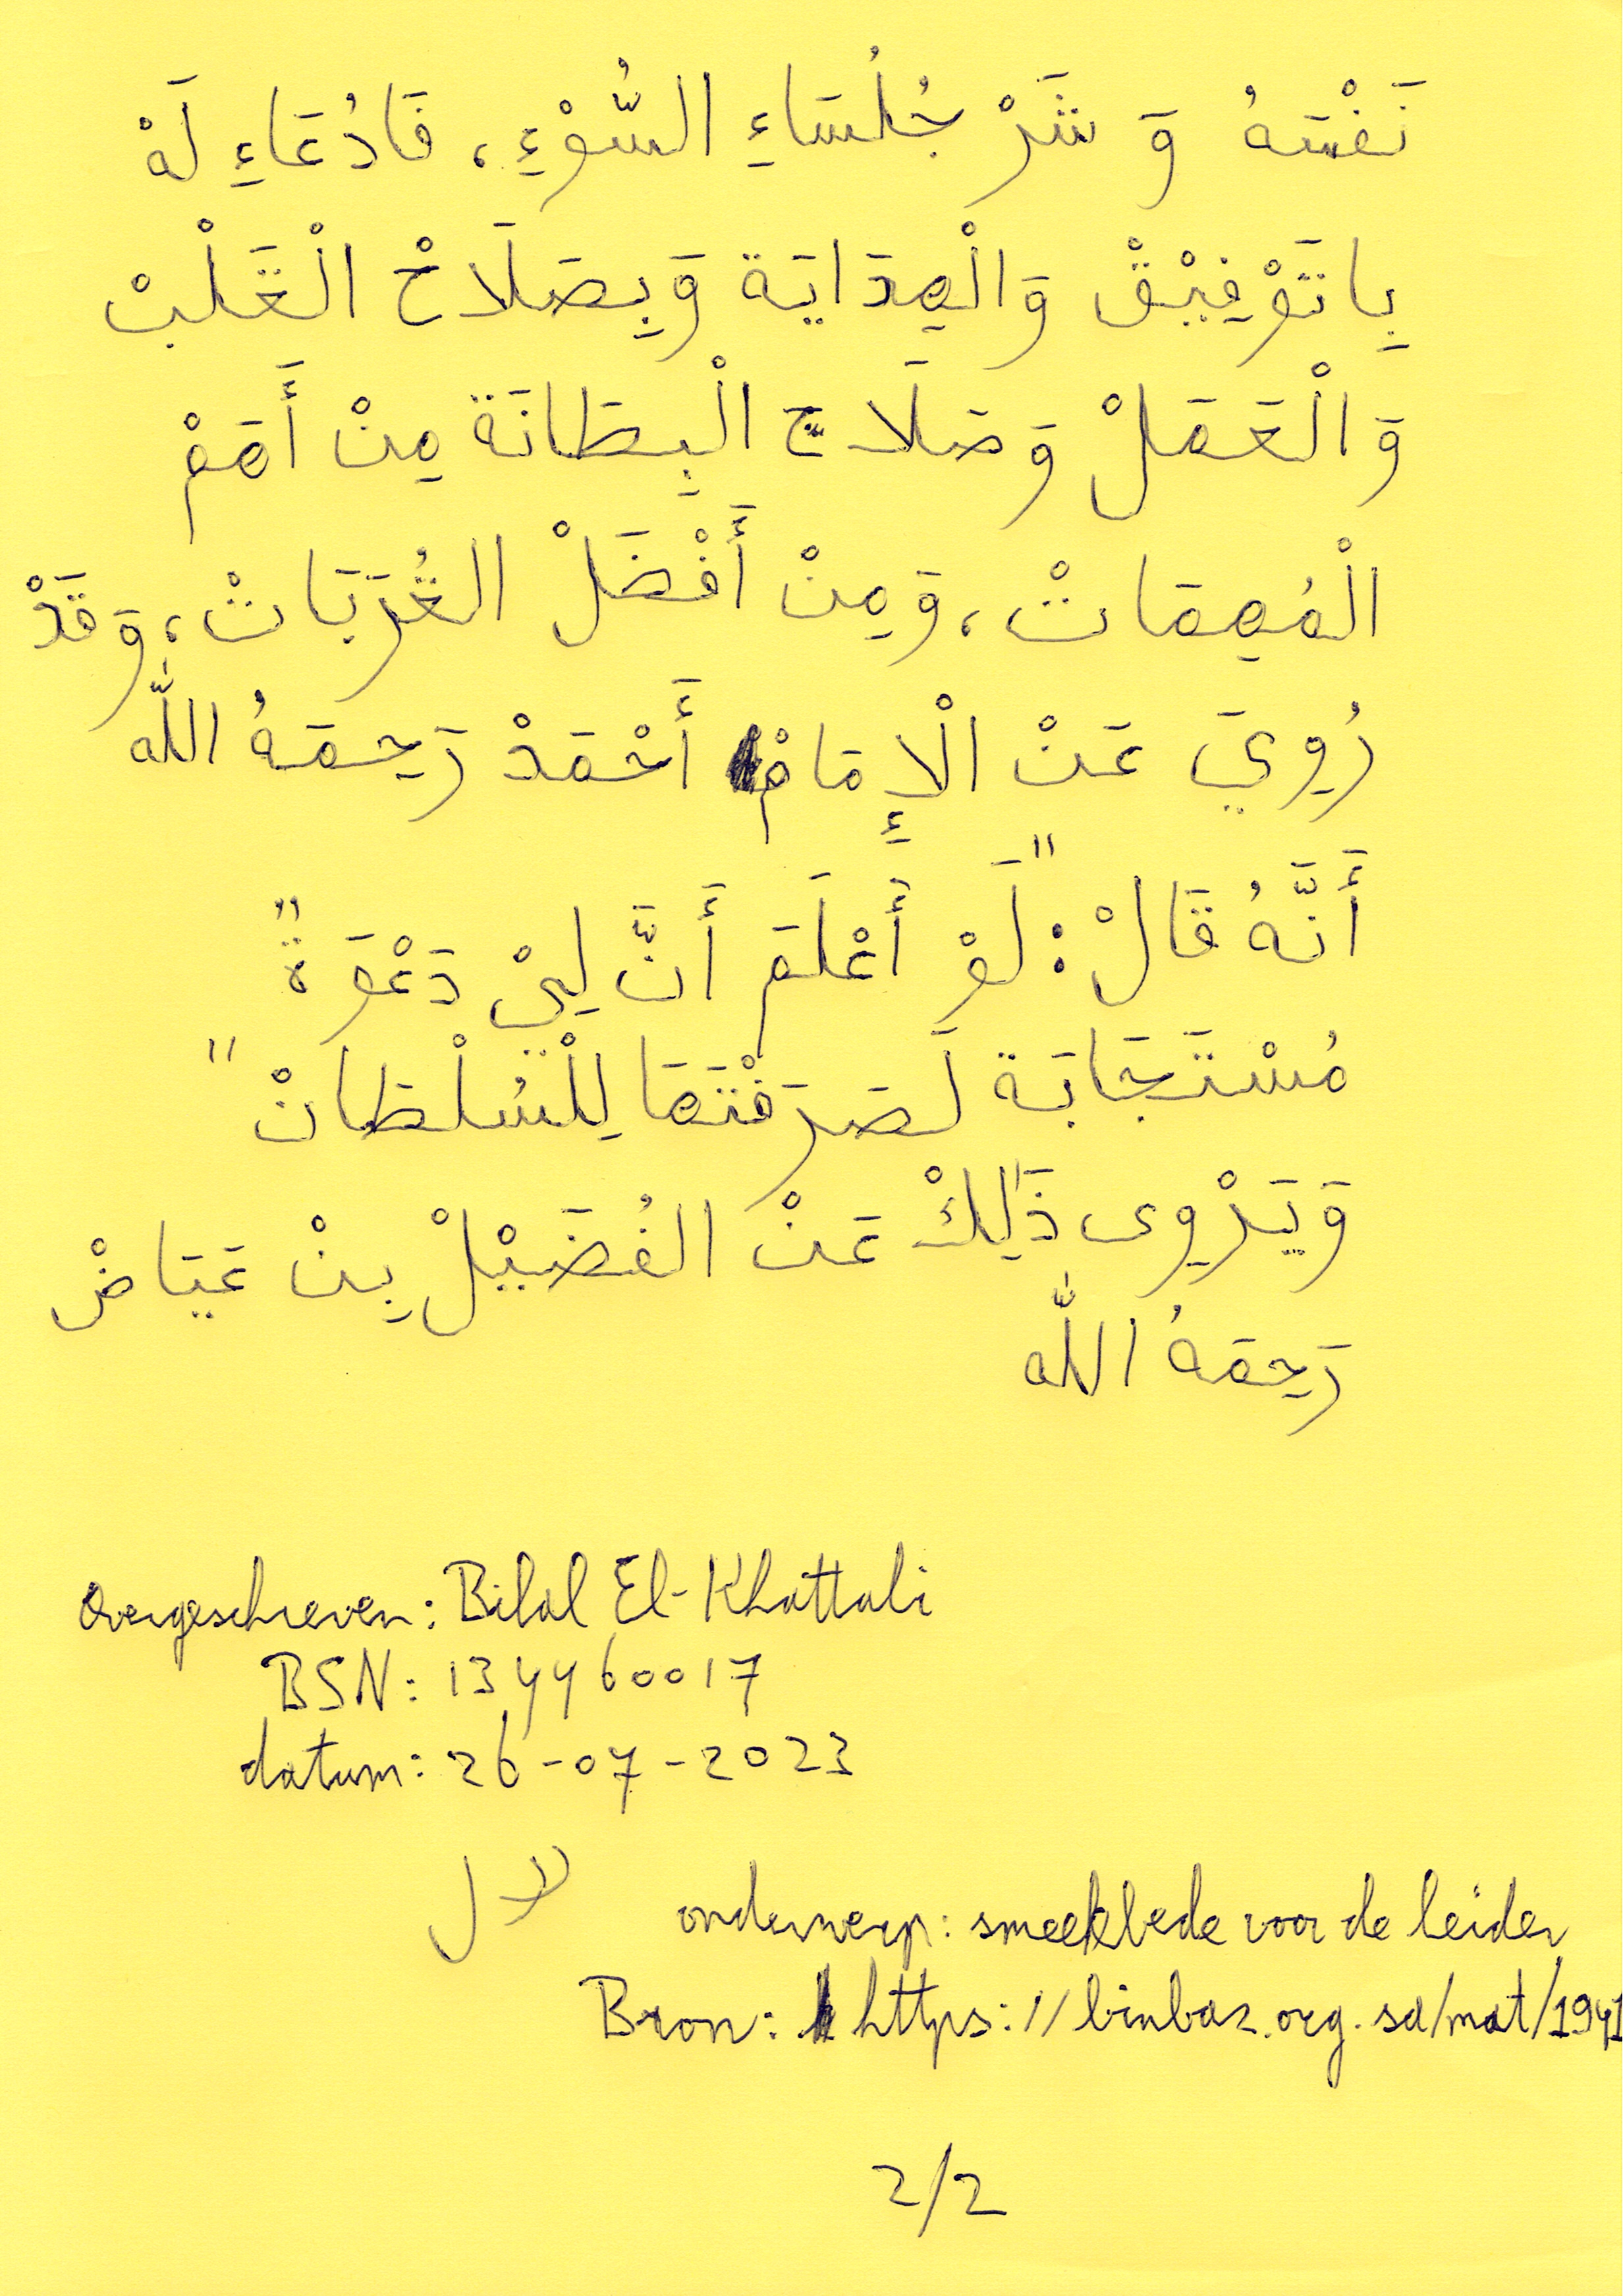 نَفْسَهُ وَ شَرْ جُلُسَاءِ السُّوْءِ، فَادُعَاءِ لَهْ
بِاتَوْفِيْقْ وَالْهِدَايَة وَبِصَلَاحْ الْقَلْبْ
وَالْعَمَلْ وَصَلَاحَ الْبِطَانَة مِنْ أَهَمْ
الْمُهِمَاتْ، وَمِنْ أَفْضَلْ القُرَبَاتْ، وَقَدْ
رُوِيَ عَنْ الْإِمَامْ أَحْمَدْ رَحِمَهُ اللّٰه
أَنَّهُ قَالْ: "لَوْ أَعْلَمَ أَنَّ لِيْ دَعْوَةً"
مُسْتَجَابَة لَصَرَفْتَهَا لِلْسُلْطَانْ"
وَيَرْوِى ذَٰلِكْ عَنْ الفُضَيْلْ بِنْ عَيَاضْ
رَحِمَهُ اللّٰه
Overgeschreven: Bilal El-Khattabi
BSN: 134460017
datum: 26-07-2023
onderwerp: smeekbede voor de leider
Bron: https://binbaz.org.sa/mat/1941
2/2